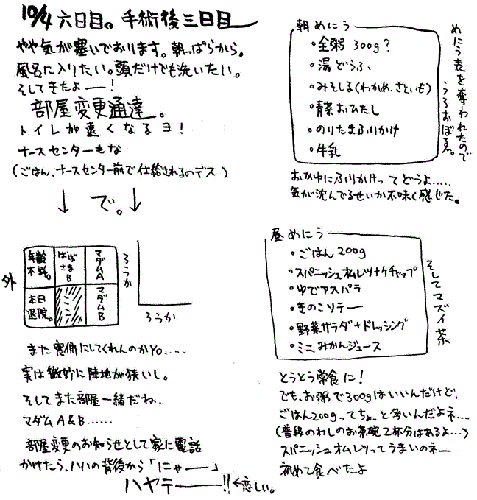 10/4 六日目。手術後三日目
やや気が塞いでおります。朝っぱらから。
風呂に入りたい。頭だけでも洗いたい。
そしてきたよー！
部屋変更通達。
トイレが遠くなるヨ！
ナースセンターもな
(ごはん、ナースセンター前で仕給されるのデス)
↓で。↓
外
年齢不詳。
ばばさまB
マダムA
本日退院。
ここ
マダムB
ろうか
ろうか
また窓側にしてくれんのかYO……
実は微妙に陸地が狭いし。
そしてまた部屋一緒だね。
マダムA&B……
部屋変更のお知らせとして家に電話
かけたら、ハハの背後から「にゃー」
ハヤテー!! ←恋しい。
朝めにう
・全粥 300g？
・湯どうふ
・みそしる(わかめ、さといも)
・青菜おひたし
・のりたまふりかけ
・牛乳
めにう表を奪われたので
うろおぼえ。
おかゆにふりかけってどうよ……
気が沈んでるせいか不味く感じた。
昼めにう
・ごはん 200g
・スパニッシュオムレツ+ケチャップ
・ゆでアスパラ
・きのこソテー
・野菜サラダ+ドレッシング
・ミニみかんジュース
そしてマズイ茶
とうとう常食に！
でも、お粥で300gはいいんだけど、
ごはん200gってちょっと多いんだよネ…
(普段のわしのお茶碗2杯分はあるよ…)
スパニッシュオムレツってうまいのネー
初めて食べたよ